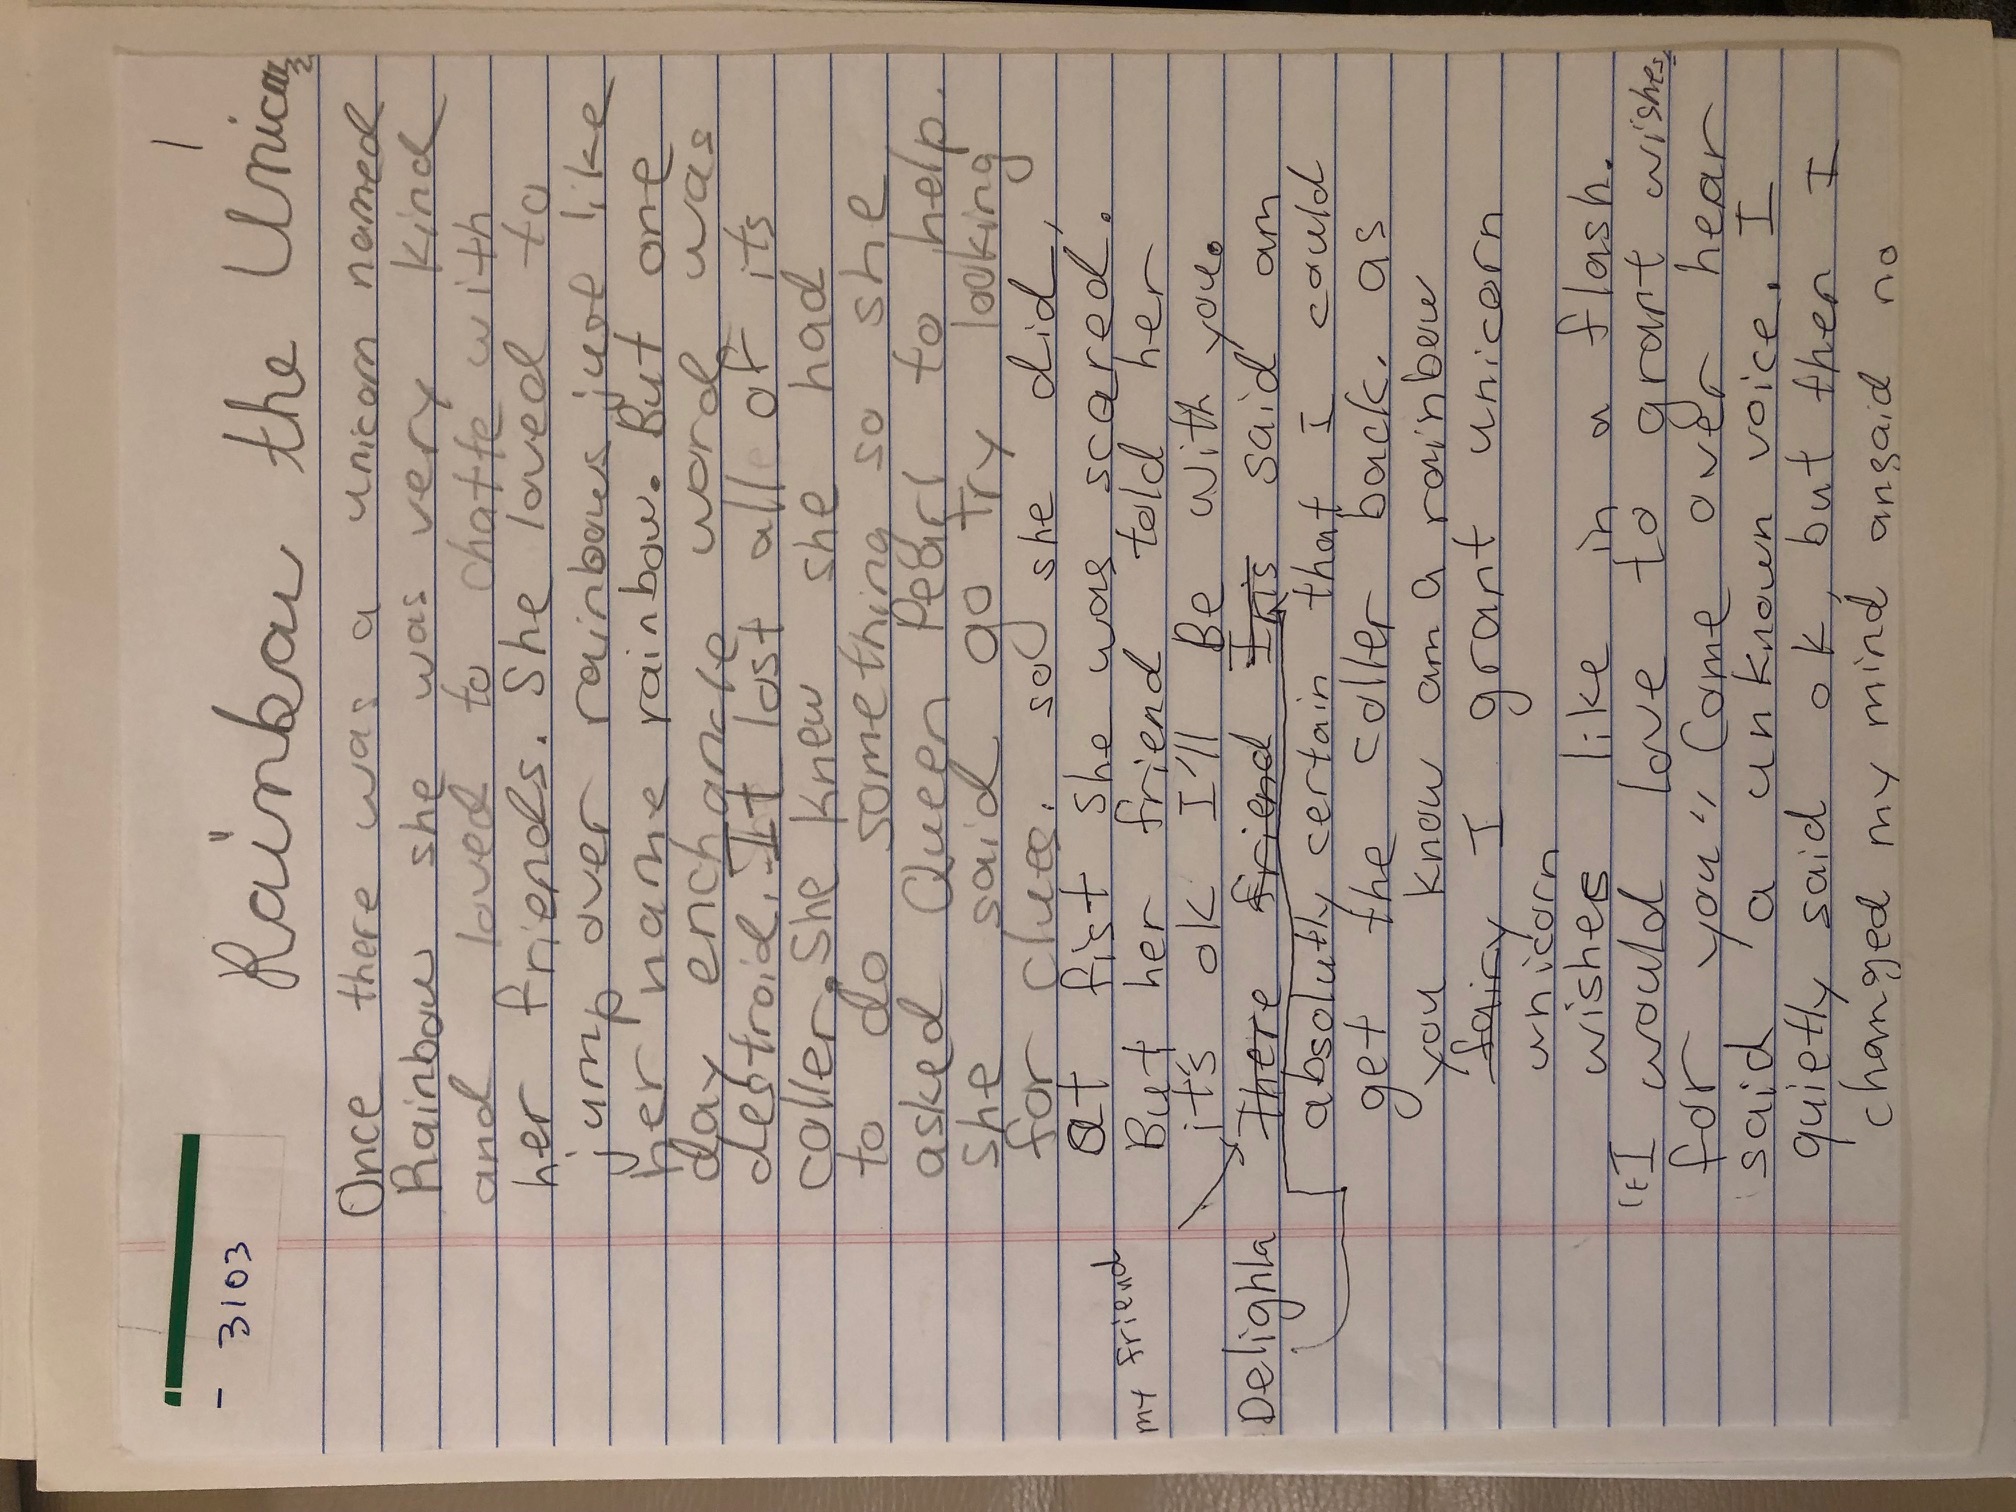 1
- 3103
Rainbow the Unicorn
Once there was a unicorn named
Rainbow she was very kind
and loved to chatte with
her friends. She loved to
jump over rainbows just like
her name rainbow. But one
day enchancle word was
destroid. It lost all of its
coller. She knew she had
to do something so she
asked Queen Pearl to help.
she said go try looking
for clues. so she did,
at fist she was scared.
my friend
But her friend told her
it's ok I'll Be with you.
Delighla
There friend Iris said am
absolutly certain that I could
get the coller back. as
you know am a rainbow
fairy I grant unicorn
unicorn
wishes like in a flash.
"I would love to grant wishes
for you" Come over hear
said a unknown voice. I
quietly said ok, but then I
changed my mind ansaid no